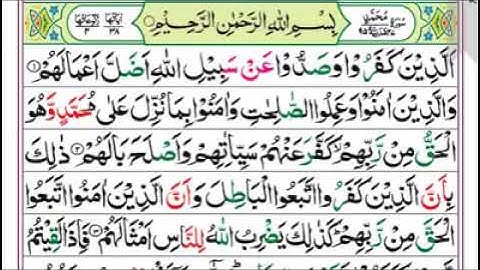 سُوْرَةُ مُحَمَّدٍ
بِسْمِ اللهِ الرَّحْمٰنِ الرَّحِيْمِ
اٰيَاتُهَا ٣٨
اَلَّذِيْنَ كَفَرُوْا وَصَدُّوْا عَنْ سَبِيْلِ اللهِ اَضَلَّ اَعْمَالَهُمْ ۝١
وَالَّذِيْنَ اٰمَنُوْا وَعَمِلُوا الصّٰلِحٰتِ وَاٰمَنُوْا بِمَا نُزِّلَ عَلٰى مُحَمَّدٍ وَّهُوَ
الْحَقُّ مِنْ رَّبِّهِمْ ۙ كَفَّرَ عَنْهُمْ سَيِّاٰتِهِمْ وَاَصْلَحَ بَالَهُمْ ۝٢ ذٰلِكَ
بِاَنَّ الَّذِيْنَ كَفَرُوا اتَّبَعُوا الْبَاطِلَ وَاَنَّ الَّذِيْنَ اٰمَنُوا اتَّبَعُوا
الْحَقَّ مِنْ رَّبِّهِمْ ۭ كَذٰلِكَ يَضْرِبُ اللهُ لِلنَّاسِ اَمْثَالَهُمْ ۝٣ فَاِذَا لَقِيْتُمُ